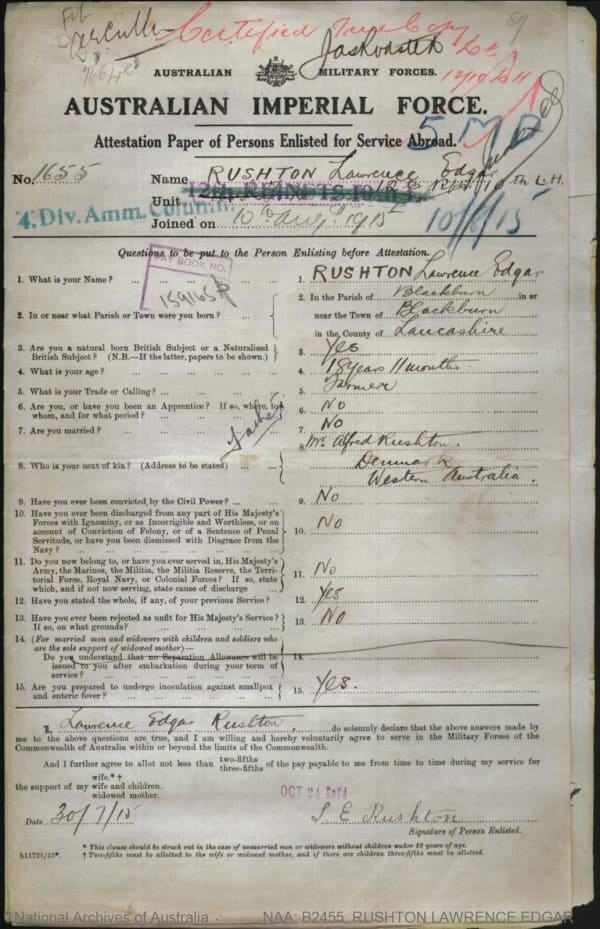 Certified True Copy
AUSTRALIAN MILITARY FORCES.
12/9/24
AUSTRALIAN IMPERIAL FORCE.
Attestation Paper of Persons Enlisted for Service Abroad.
No. 1655 Name RUSHTON Lawrence Edgar
Unit 10th L.H.
4. Div. Amm. Column
Joined on 10th Aug. 1915
10/8/15
Questions to be put to the Person Enlisting before Attestation.
PAY BOOK NO.
159165
1. What is your Name? ... 1. RUSHTON Lawrence Edgar
2. In or near what Parish or Town were you born? ... 2. In the Parish of Blackburn in or
near the Town of Blackburn
in the County of Lancashire
3. Are you a natural born British Subject or a Naturalised
British Subject? (N.B.—If the latter, papers to be shown.) 3. Yes
4. What is your age? ... 4. 18 years 11 months
5. What is your Trade or Calling? ... 5. Farmer
6. Are you, or have you been an Apprentice? If so, where, to
whom, and for what period? ... 6. No
7. Are you married? ... 7. No
Father
8. Who is your next of kin? (Address to be stated) ... 8. Mr. Alfred Rushton.
Denmark
Western Australia.
9. Have you ever been convicted by the Civil Power? ... 9. No
10. Have you ever been discharged from any part of His Majesty's
Forces with Ignominy, or as Incorrigible and Worthless, or on
account of Conviction of Felony, or of a Sentence of Penal
Servitude, or have you been dismissed with Disgrace from the
Navy? ... 10. No
11. Do you now belong to, or have you ever served in, His Majesty's
Army, the Marines, the Militia, the Militia Reserve, the Terri-
torial Force, Royal Navy, or Colonial Forces? If so, state
which, and if not now serving, state cause of discharge ... 11. No
12. Have you stated the whole, if any, of your previous Service? 12. Yes
13. Have you ever been rejected as unfit for His Majesty's Service?
If so, on what grounds? 13. No
14. (For married men and widowers with children and soldiers who
are the sole support of widowed mother)—
Do you understand that no Separation Allowance will be
issued to you after embarkation during your term of
service? ... 14.
15. Are you prepared to undergo inoculation against smallpox
and enteric fever? ... 15. Yes.
I, Lawrence Edgar Rushton, do solemnly declare that the above answers made by
me to the above questions are true, and I am willing and hereby voluntarily agree to serve in the Military Forces of the
Commonwealth of Australia within or beyond the limits of the Commonwealth.
And I further agree to allot not less than two-fifths
three-fifths of the pay payable to me from time to time during my service for
wife.* †
the support of my wife and children.
widowed mother.
OCT 21
Date 30/7/15 L E Rushton
Signature of Person Enlisted.
* This clause should be struck out in the case of unmarried men or widowers without children under 18 years of age.
h11721/15*. † Two-fifths must be allotted to the wife or widowed mother, and if there are children three-fifths must be allotted.
National Archives of Australia NAA: B2455, RUSHTON LAWRENCE EDGAR